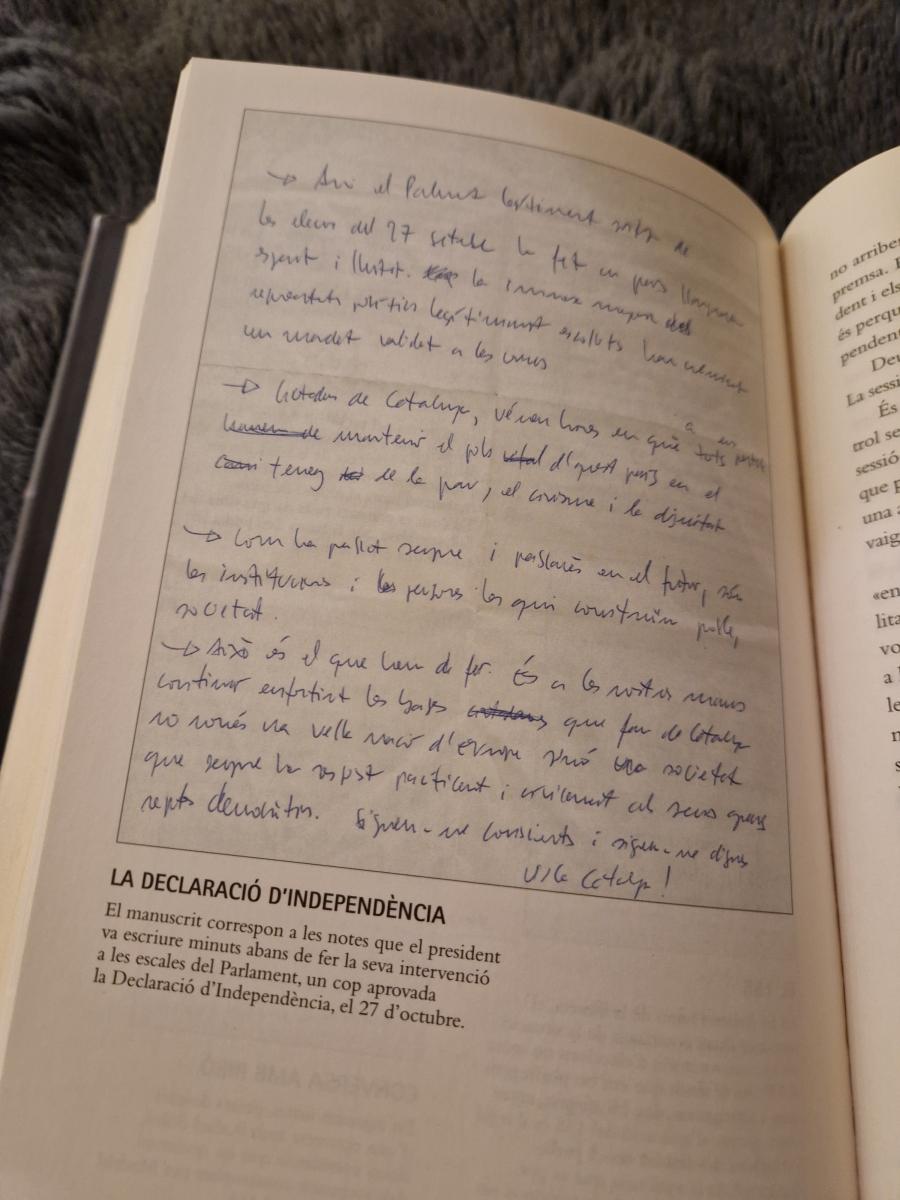 → Avui el Parlament legítiment sortit de
les eleccions del 27 setembre ha fet un pas llargament
esperat i lluitat. la immensa majoria dels
representants polítics legítimament escollits han
un mandat validat a les urnes
→ Ciutadans de Catalunya, vénen hores en què a tots ens pertoca
mantenir el pols d'aquest país en el
terreny de la pau, el civisme i la dignitat
→ Com ha passat sempre i passarà en el futur, són
les institucions i les persones les qui construïm poble,
societat.
→ Això és el que hem de fer. És a les nostres mans
continuar enfortint les bases que fan de Catalunya
no només una vella nació d'Europa sinó una societat
que sempre ha respost pacíficament i cívicament als seus grans
reptes democràtics. Siguem-ne conscients i siguem-ne dignes
Visca Catalunya!
LA DECLARACIÓ D'INDEPENDÈNCIA
El manuscrit correspon a les notes que el president
va escriure minuts abans de fer la seva intervenció
a les escales del Parlament, un cop aprovada
la Declaració d'Independència, el 27 d'octubre.
no arribe
premsa. 
dent i els
és perqu
penden
Deu
La sessi
És
trol se
sessió
que p
una a
vaig
«en
lita
vo
a l
le